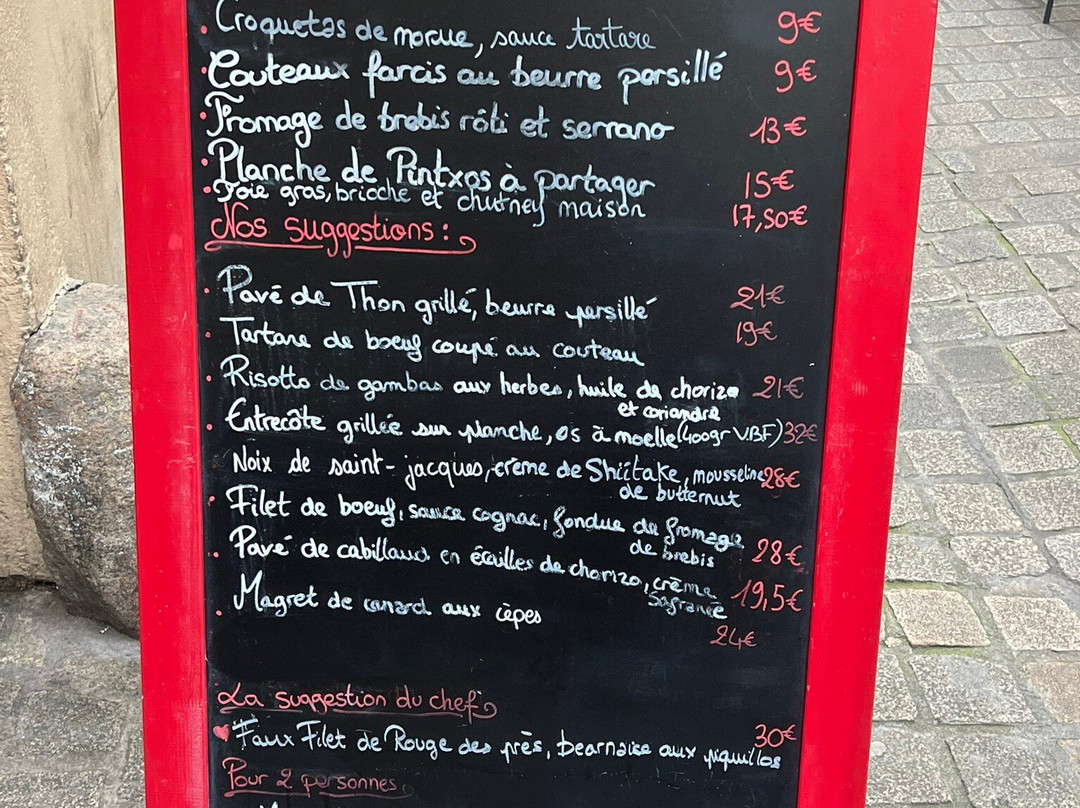 Croquetas de morue, sauce tartare 9€
Couteaux farcis au beurre persillé 9€
Fromage de brebis rôti et serrano 13€
Planche de Pintxos à partager 15€
Foie gras, brioche et chutney maison 17,50€
Nos suggestions :
Pavé de Thon grillé, beurre persillé 21€
Tartare de boeuf coupé au couteau 19€
Risotto de gambas aux herbes, huile de chorizo 21€
et coriandre
Entrecôte grillée sur planche, os à moelle (400gr VBF) 32€
Noix de saint-jacques, crème de Shiitake, mousseline 28€
de butternut
Filet de boeuf, sauce cognac, fondue de fromage
de brebis 28€
Pavé de cabillaud en écailles de chorizo, crème 19,5€
safranée
Magret de canard aux cèpes
24€
La suggestion du chef
Faux Filet de Rouge des près, bearnaise aux piquillos 30€
Pour 2 personnes